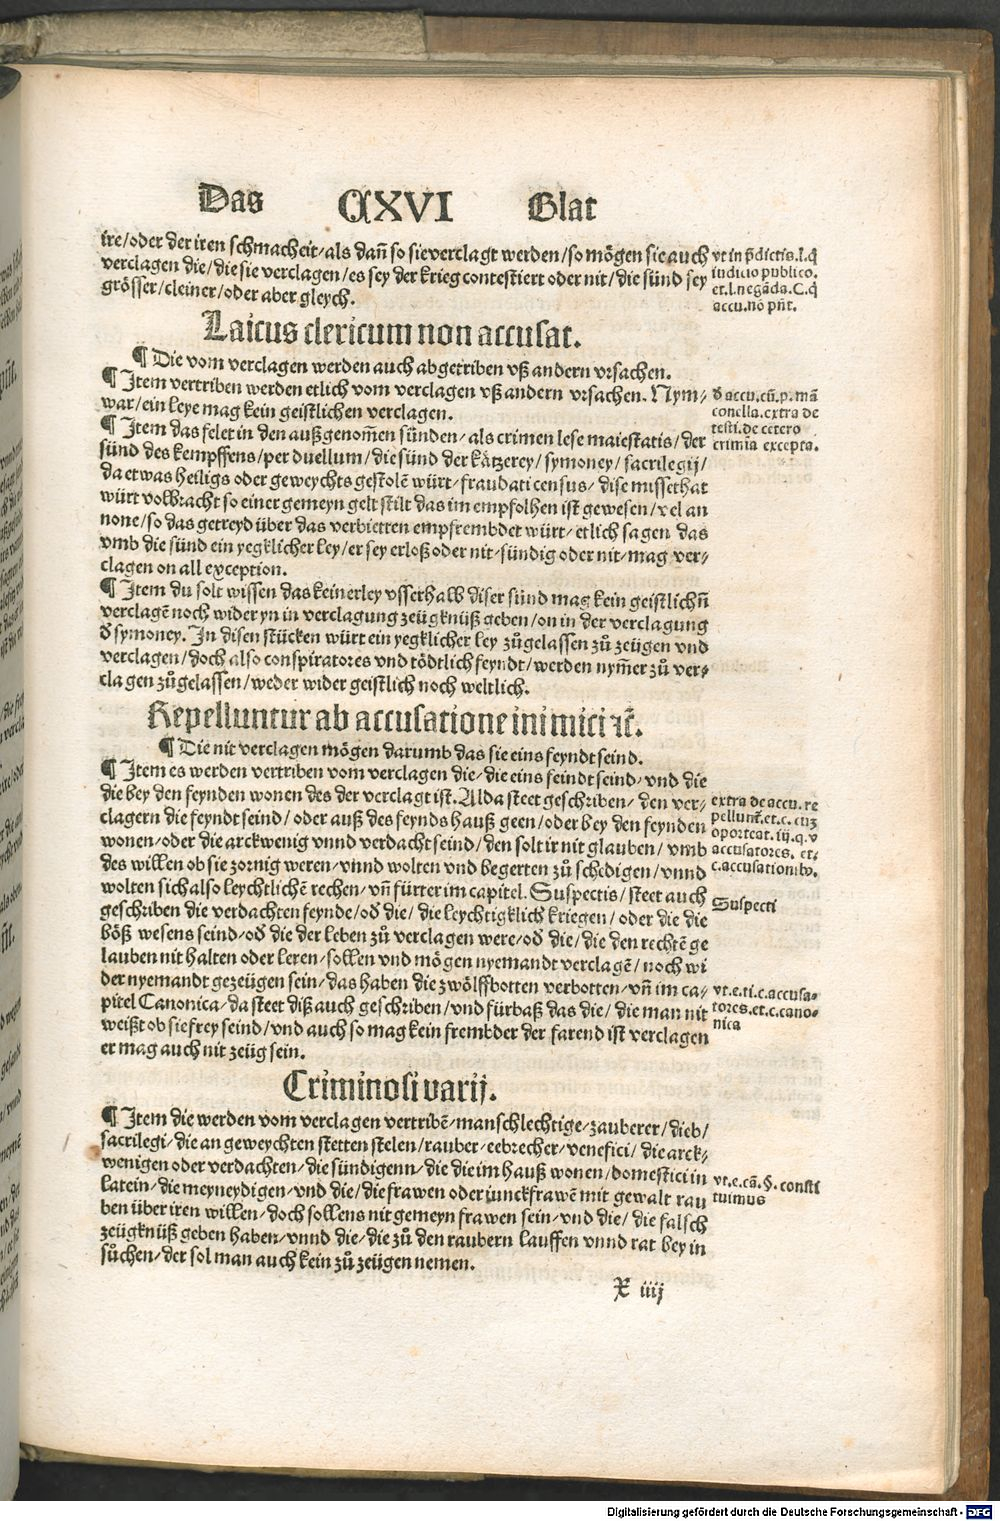 Das CXVI Blat
ire/oder der iren schmacheit/als dañ so sie verclagt werden/so mögen sie auch
verclagen die/die sie verclagen/es sey der krieg contestiert oder nit/die sünd sey
grösser/cleiner/oder aber gleych.
vt in p̄dictis.l.q̇
iudicio publico.
et.l.negāda.C.q̇
accu.nō pñt.
Laicus clericum non accusat.
¶ Die vom verclagen werden auch abgetriben vß andern vrsachen.
¶ Item vertriben werden etlich vom verclagen vß andern vrsachen. Nym-
war/ein leye mag kein geistlichen verclagen.
¶ Item das felet in den außgenom̄en sünden/als crimen lese maiestatis/der
sünd des kempffens/per duellum/die sünd der kätzerey/symoney/sacrilegij/
da etwas heiligs oder geweychts gestolē würt/fraudati census/dise missethat
würt volbracht so einer gemeyn gelt stilt das im empfolhen ist gewesen/vel an
none/so das getreyd über das verbietten empfrembdet würt/etlich sagen das
vmb die sünd ein yegklicher ley/er sey erloß oder nit/sündig oder nit/mag ver-
clagen on all exception.
δ accu.cū.p.mā
conella.extra de
testi.de cetero
crimīa excepta.
¶ Item du solt wissen das keinerley vsserhalb diser sünd mag kein geistlichñ
verclagē noch wider yn in verclagung zeügknüß geben/on in der verclagung
δ symoney. In disen stücken würt ein yegklicher ley zůgelassen zů zeügen vnd
verclagen/doch also conspiratores vnd tödtlich feyndt/werden nym̄er zů ver-
clagen zůgelassen/weder wider geistlich noch weltlich.
Repelluntur ab accusatione inimici ⁊c̄.
¶ Die nit verclagen mögen darumb das sie eins feyndt seind.
¶ Item es werden vertriben vom verclagen die/die eins feindt seind/vnd die
die bey den feynden wonen des der verclagt ist. Alda steet geschriben/den ver-
clagern die feyndt seind/oder auß des feynds hauß geen/oder bey den feynden
wonen/oder die arckwenig vnnd verdacht seind/den solt ir nit glauben/vmb
des willen ob sie zornig weren/vnnd wolten vnd begerten zů schedigen/vnnd
wolten sich also leychtlichē rechen/vñ fürter im capitel. Suspectis/steet auch
geschriben die verdachten feynde/oδ die/die leychtigklich kriegen/oder die die
böß wesens seind/oδ die der leben zů verclagen were/oδ die/die den rechtē ge
lauben nit halten oder leren/sollen vnd mögen nyemandt verclagē/noch wi
der nyemandt gezeügen sein/das haben die zwölffbotten verbotten/vñ im ca-
pitel Canonica/da steet diß auch geschriben/vnd fürbaß das die/die man nit
weißt ob sie frey seind/vnd auch so mag kein frembder der farend ist verclagen
er mag auch nit zeüg sein.
extra de accu.re
pellunt̄.et.c.cuʒ
oporteat.iij.q.v
accusatores. et.
c.accusatioībꝰ.
Suspecti
vt.e.ti.c.accusa-
tores.et.c.cano-
nica
Criminosi varij.
¶ Item die werden vom verclagen vertribē/manschlechtige/zauberer/dieb/
sacrilegi/die an geweychten stetten stelen/rauber/eebrecher/venefici/die arck-
wenigen oder verdachten/die sündigenn/die die im hauß wonen/domestici in
latein/die meyneydigen/vnd die/die frawen oder junckfrawē mit gewalt rau
ben über iren willen/doch sollens nit gemeyn frawen sein/vnd die/die falsch
zeügknüß geben haben/vnnd die/die zů den raubern lauffen vnnd rat bey in
sůchen/der sol man auch kein zů zeügen nemen.
vt.e.cā.§.consti
tuimus
X iiij
Digitalisierung gefördert durch die Deutsche Forschungsgemeinschaft - DFG